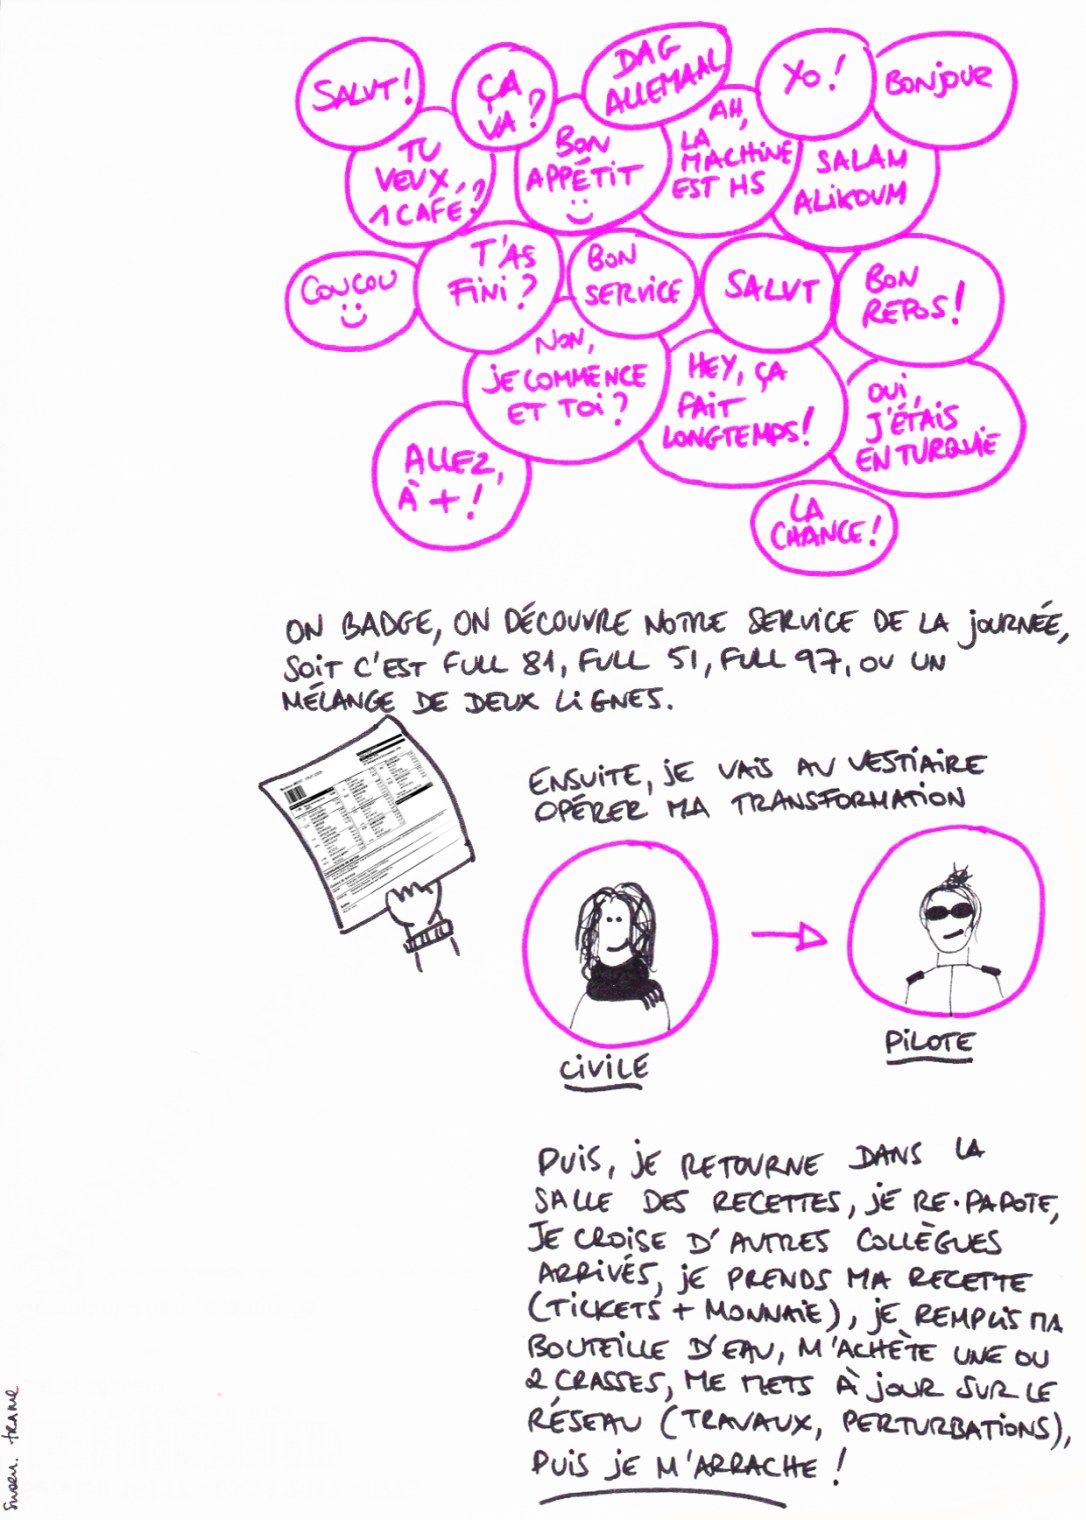 SALUT!
ÇA
VA?
DAG
ALLEMAAL
YO!
BONJOUR
TU
VEUX
1 CAFÉ?
BON
APPÉTIT
AH,
LA
MACHINE
EST HS
SALAM
ALIKOUM
COUCOU
T'AS
FINI?
BON
SERVICE
SALUT
BON
REPOS!
NON,
JE COMMENCE
ET TOI?
HEY, ÇA
FAIT
LONGTEMPS!
OUI,
J'ÉTAIS
EN TURQUIE
ALLEZ,
À +!
LA
CHANCE!
ON BADGE, ON DÉCOUVRE NOTRE SERVICE DE LA JOURNÉE,
SOIT C'EST FULL 81, FULL 51, FULL 97, OU UN
MÉLANGE DE DEUX LIGNES.
ENSUITE, JE VAIS AU VESTIAIRE
OPÉRER MA TRANSFORMATION
CIVILE
PILOTE
PUIS, JE RETOURNE DANS LA
SALLE DES RECETTES, JE RE-PAPOTE,
JE CROISE D'AUTRES COLLÈGUES
ARRIVÉS, JE PRENDS MA RECETTE
(TICKETS + MONNAIE), JE REMPLIS MA
BOUTEILLE D'EAU, M'ACHÈTE UNE OU
2 CRASSES, ME METS À JOUR SUR LE
RÉSEAU (TRAVAUX, PERTURBATIONS),
PUIS JE M'ARRACHE!